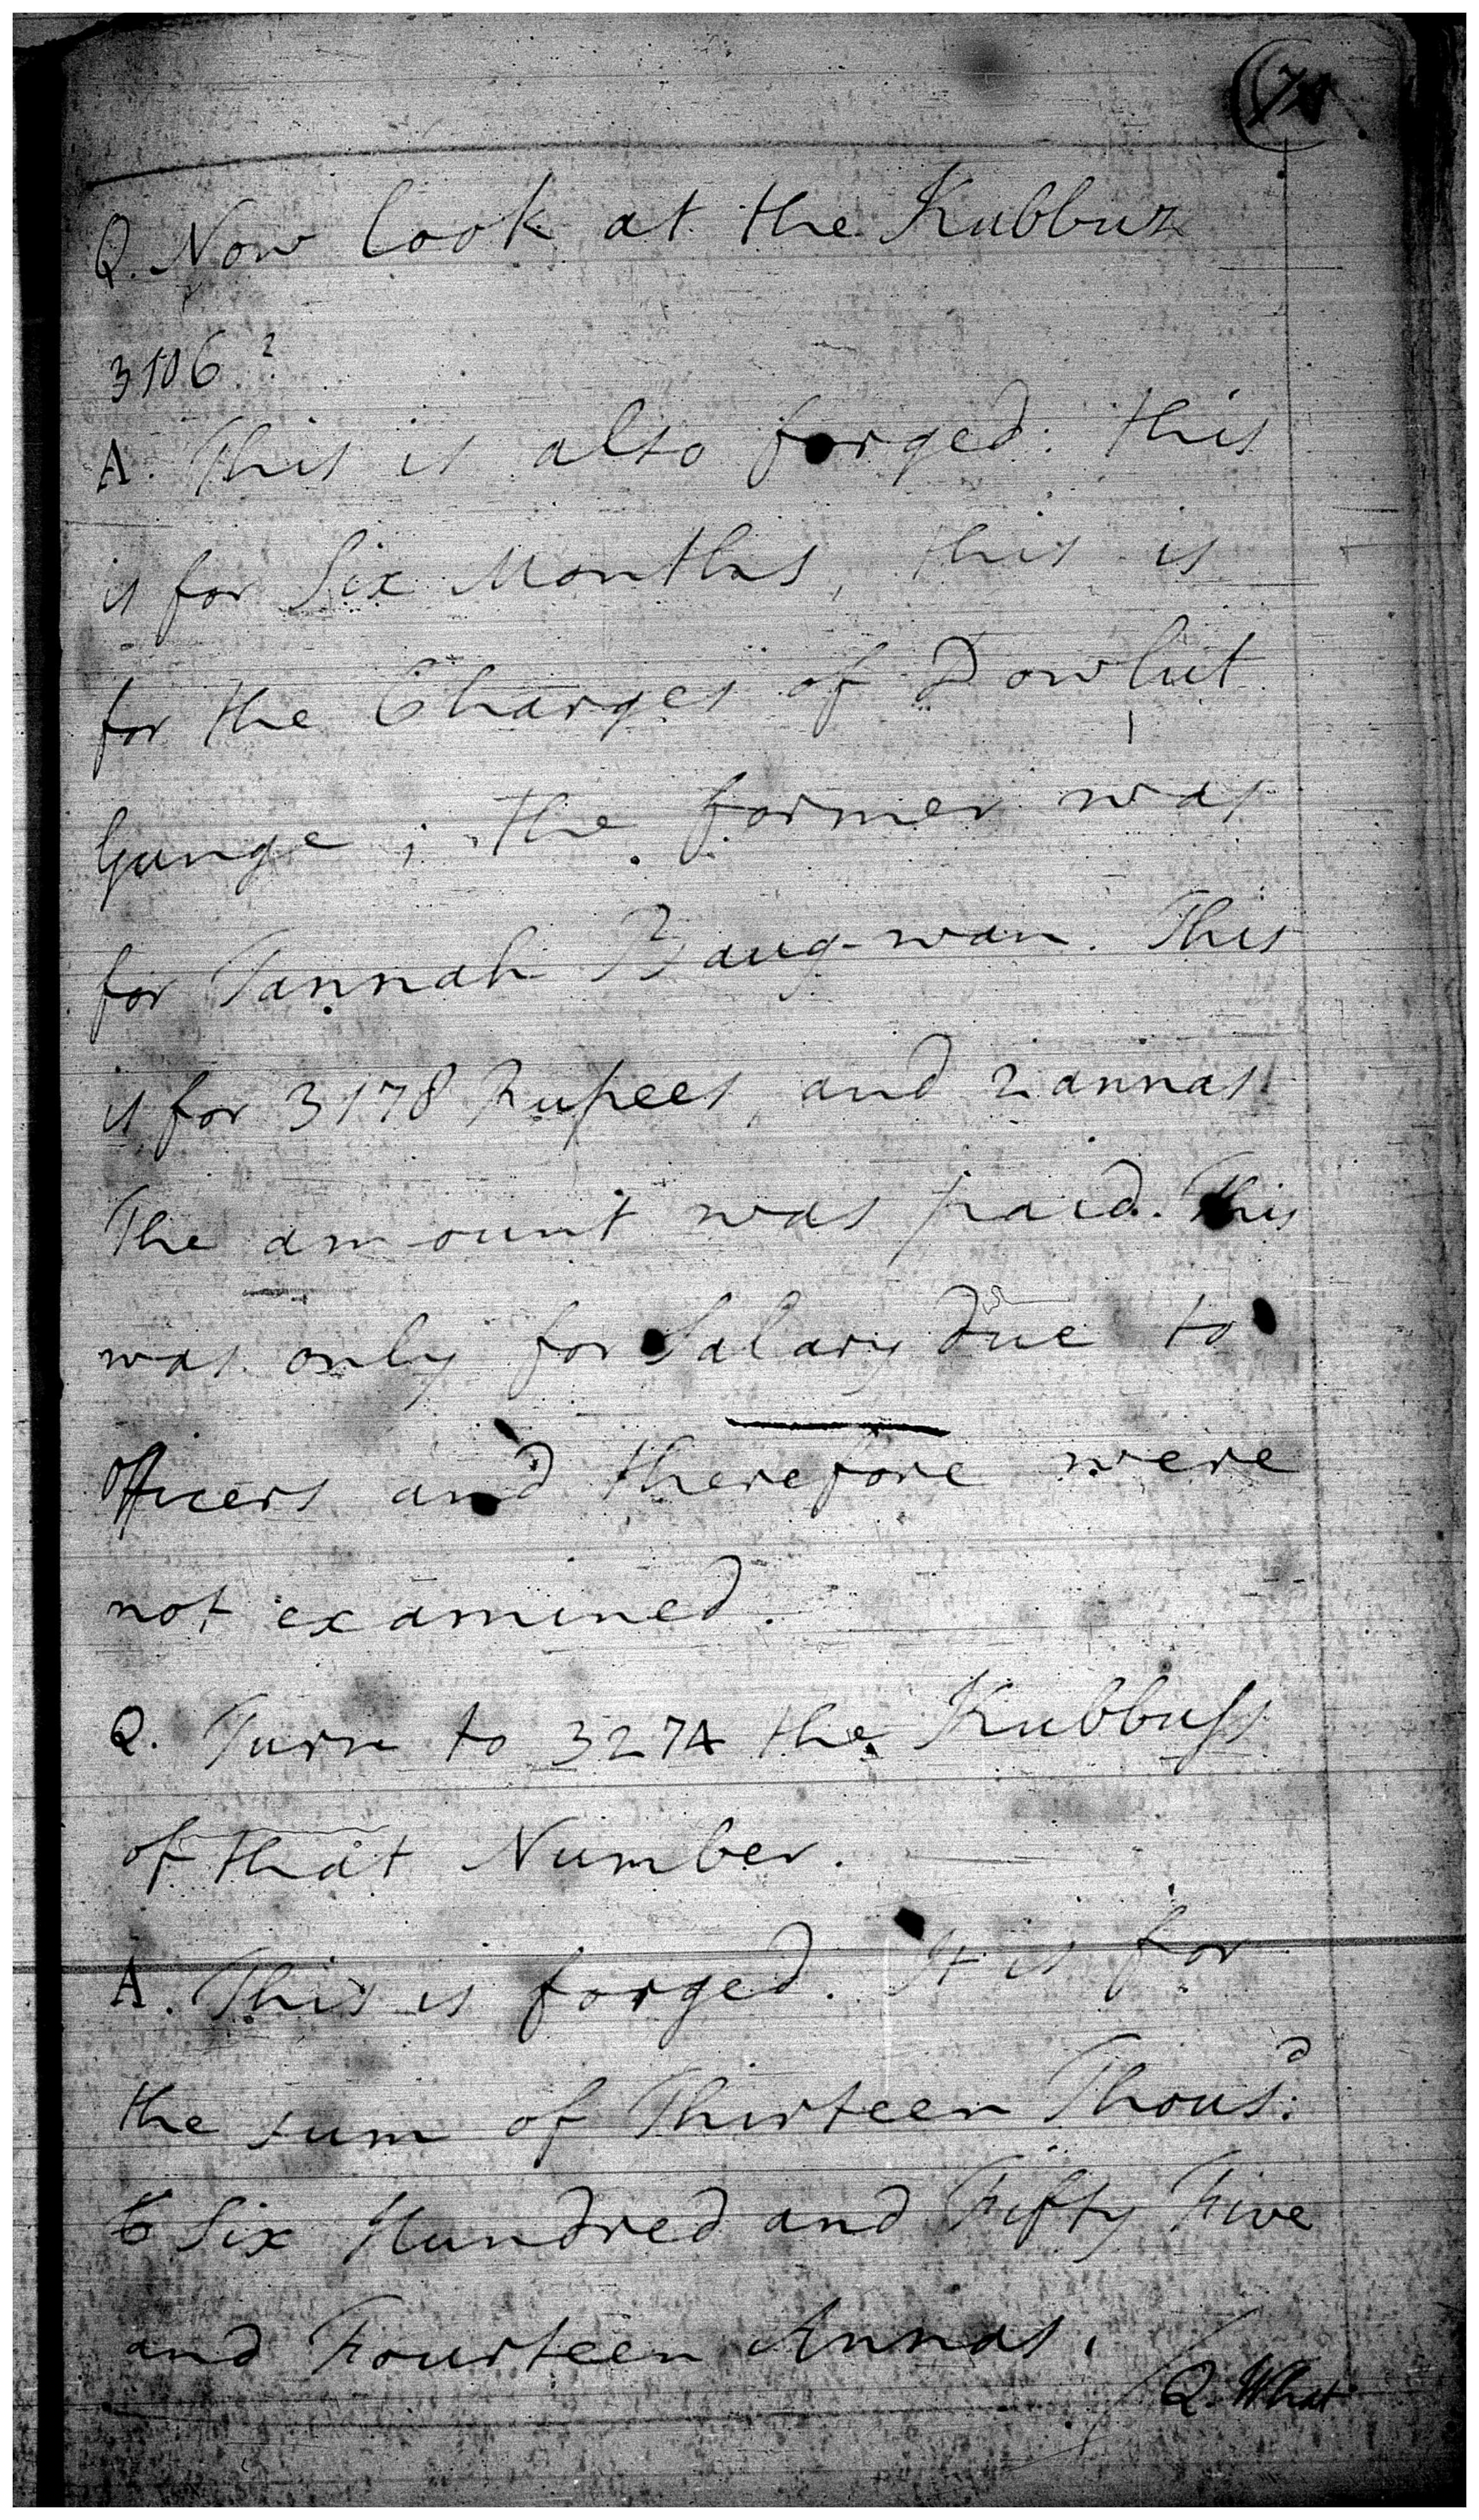 Q. Now look at the Kubbuz
3106?
A. This is also forged: this
is for Six Months, this is
for the Charges of Dowlut
Gunge; the former was
for Tannah Baug-wan. This
is for 3178 Rupees, and 2 annas
The amount was paid. This
was only for Salary due to
Officers and therefore were
not examined.
Q. Turn to 3274 the Kubbuss
of that Number.
A. This is forged. It is for
the sum of Thirteen Thous.d
Six Hundred and Fifty Five
and Fourteen Annas.
Q. What